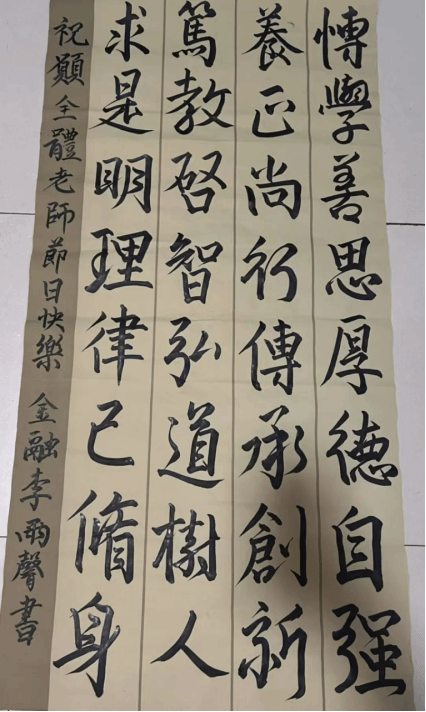 博學善思厚德自强
養正尚行傳承創新
篤教啓智弘道樹人
求是明理律己脩身
祝願全體老師節日快樂 金融李雨馨書